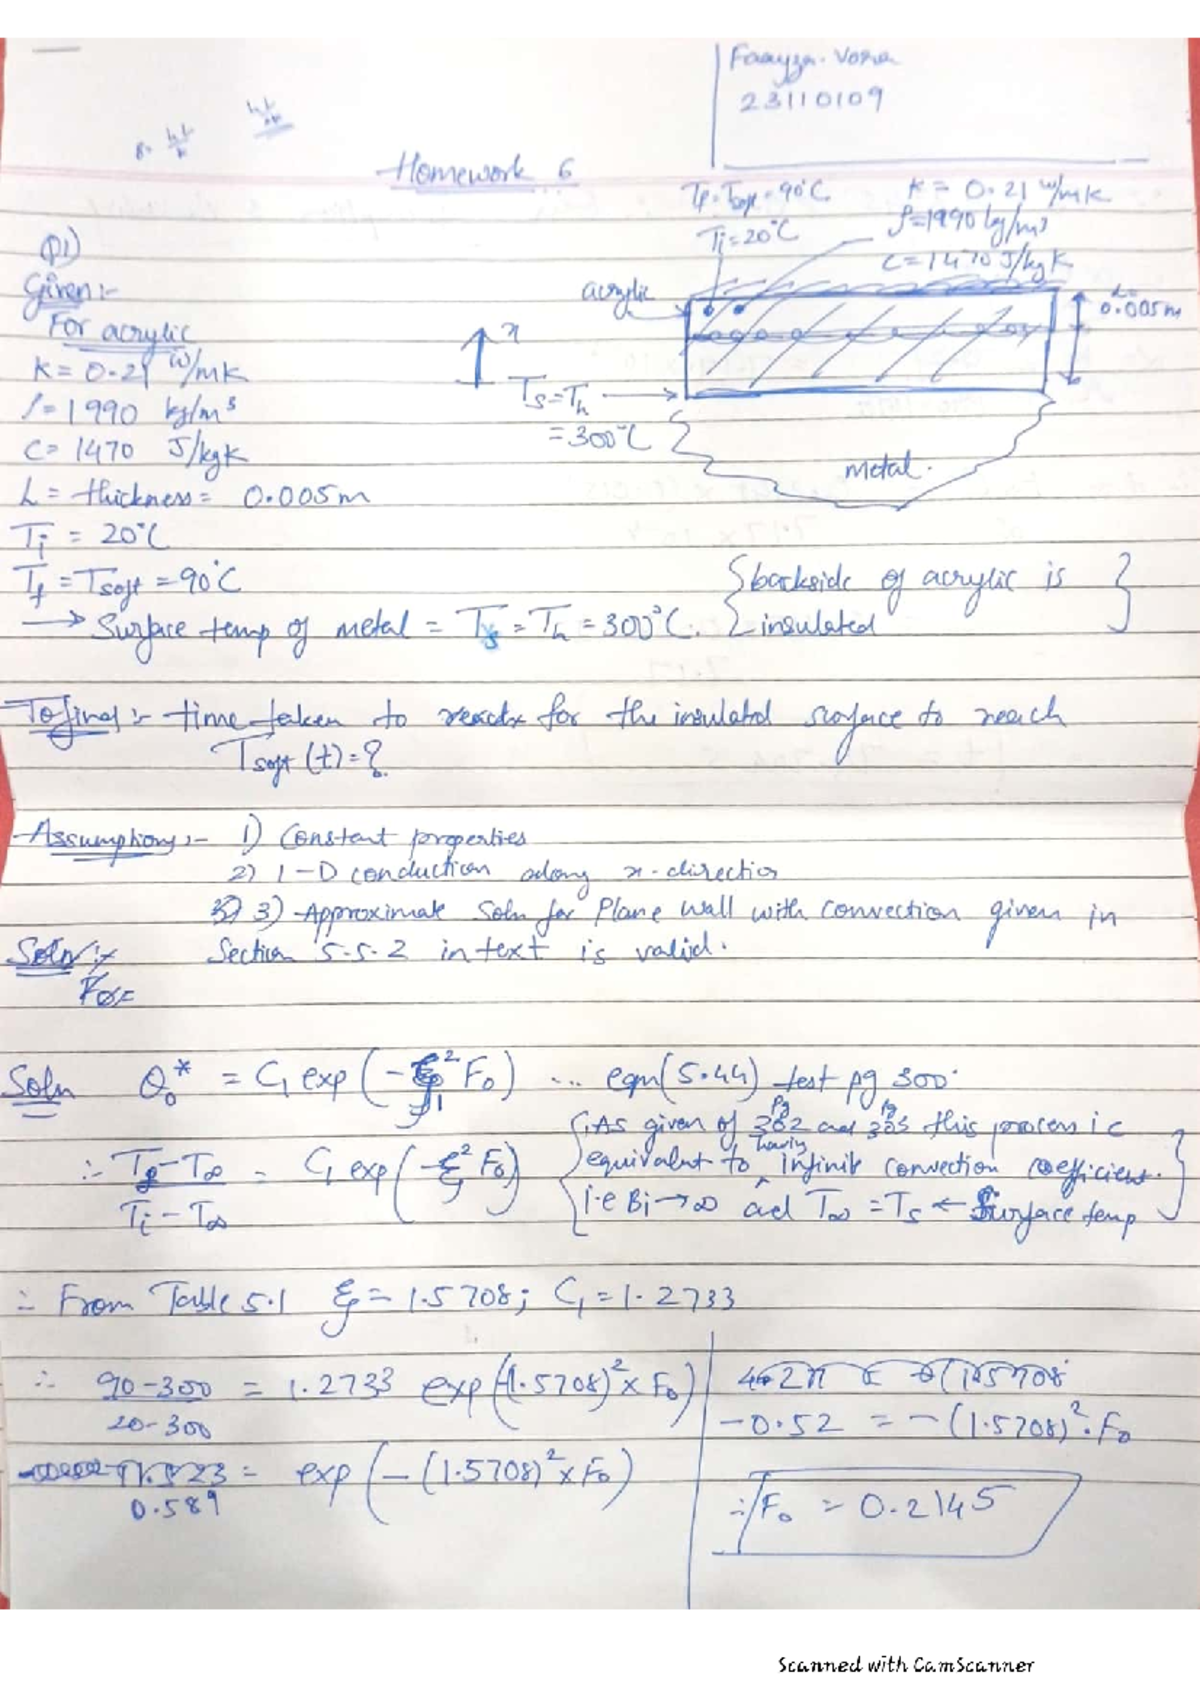 Faayza. Vora
23110109
Homework 6
Tf = Tsoft = 90°C
K = 0.21 W/mK
Ti = 20°C
ρ = 1990 kg/m³
C = 1470 J/kgK
Q1)
Given:-
For acrylic
acrylic
L=
0.005m
x
K = 0.21 W/mK
Ts = Th
= 300°C
ρ = 1990 kg/m³
C = 1470 J/kgK
metal.
L = thickness = 0.005m
Ti = 20°C
Tf = Tsoft = 90°C
{backside of acrylic is insulated}
→ Surface temp of metal = Ts = Th = 300°C.
To find:- time taken to for the insulated surface to reach
Tsoft (t) = ?
Assumptions:- 1) Constant properties
2) 1-D conduction along x-direction
3) Approximate Soln for Plane Wall with convection given in
Section 5.5.2 in text is valid.
Soln:-
Fo=
Soln θo* = C1 exp(-ξ1² Fo) ... eqn(5.44) text pg 300.
∴ To-T∞ / Ti-T∞ = C1 exp(-ξ² Fo)
{As given of pg 302 and pg 303 this process is
equivalent to having infinite convection coefficient.
i.e Bi→∞ and T∞ = Ts ← Surface temp}
∴ From Table 5.1 ξ = 1.5708; C1 = 1.2733
∴ 90-300 / 20-300 = 1.2733 exp(-(1.5708)² x Fo)
0.589 = exp(-(1.5708)² x Fo)
-0.52 = -(1.5708)². Fo
∴ Fo = 0.2145
Scanned with CamScanner